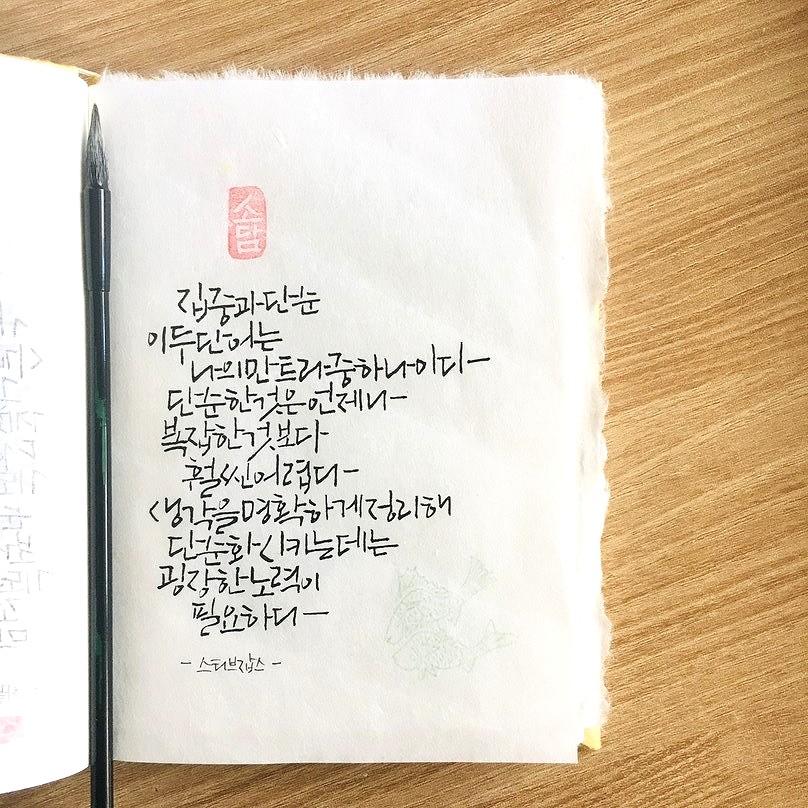 소담
집중과 단순
이 두 단어는
나의 만트라 중 하나이다
단순한 것은 언제나
복잡한 것보다
훨씬 어렵다
생각을 명확하게 정리해
단순화시키는 데는
굉장한 노력이
필요하다
- 스티브잡스 -